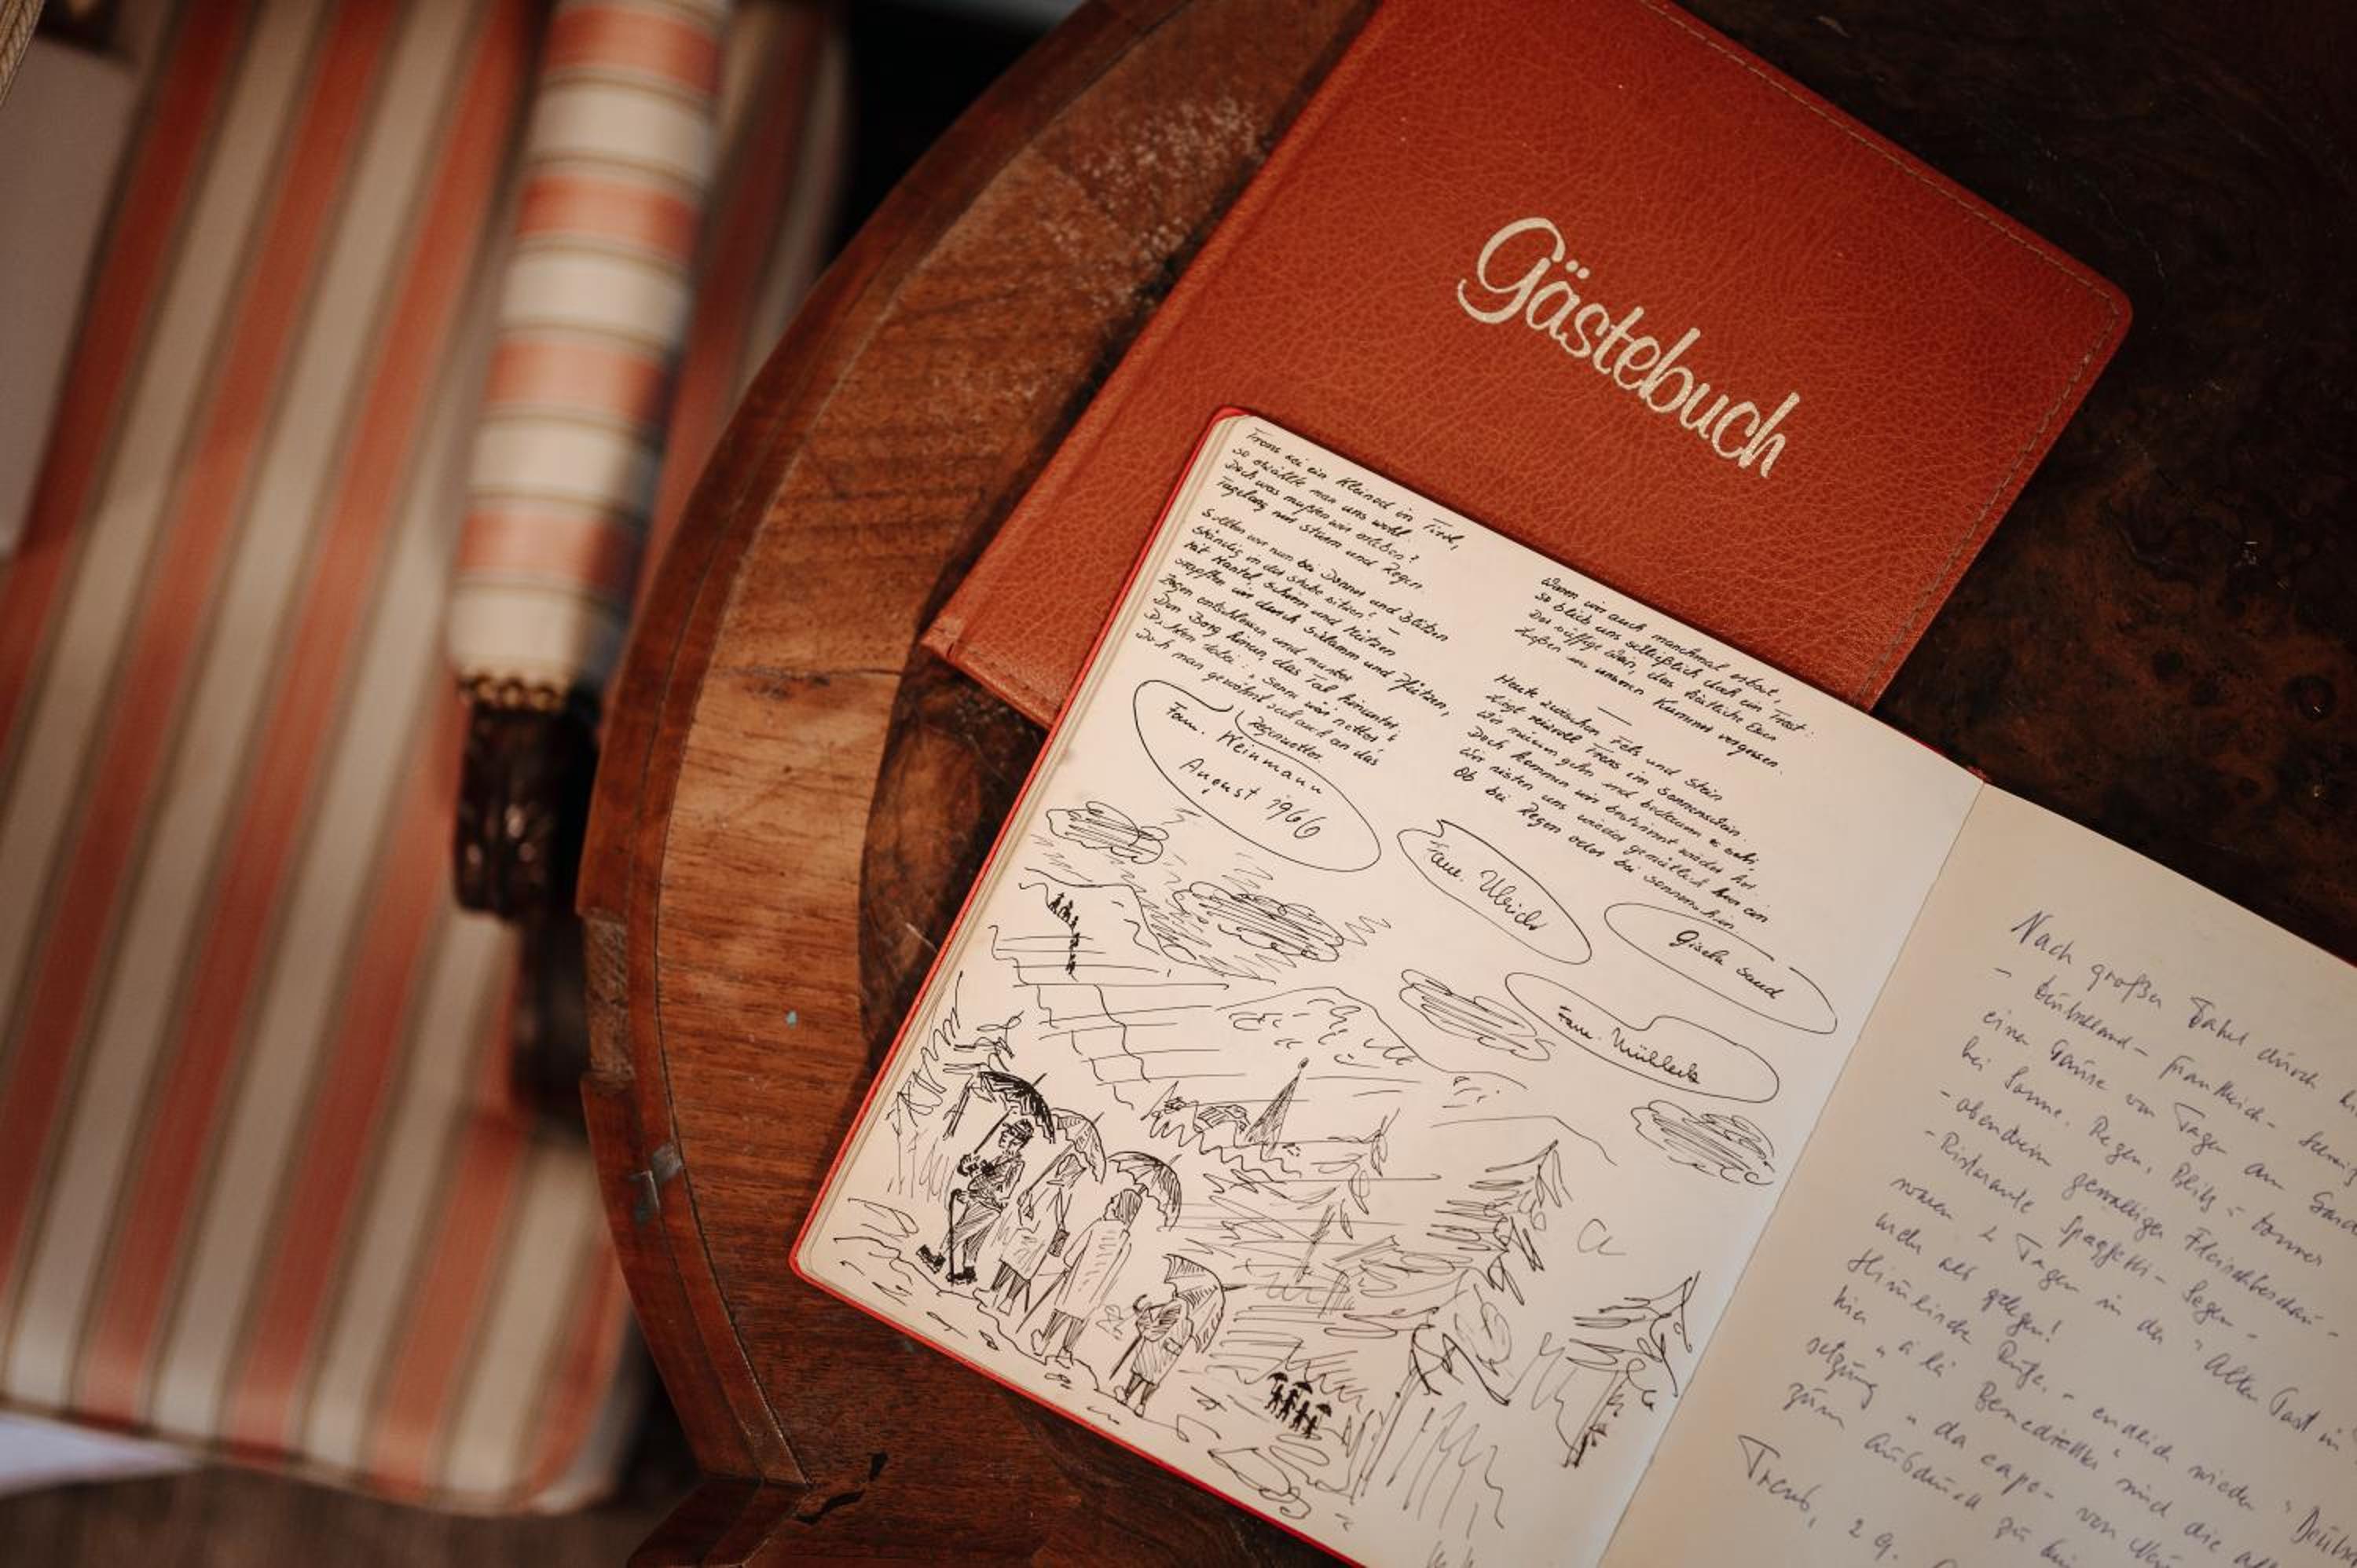 Gästebuch
Trens sei ein Kleinod in Tirol,
so erzählte man uns wohl.
Doch was mußten wir erleben?
Tagelang nur Sturm und Regen
Sollten wir nun bei Donner und Blitzen
ständig in der Stube sitzen? –
Mit Mantel, Schirm und Mützen
stapften wir durch Schlamm und Pfützen,
zogen entschlossen und munter
Den Berg hinan, das Tal hinunter,
Dachten dabei: "Schön wär netter,
Doch man gewöhnt sich auch an das
Regenwetter.
Fam. Weinmann
August 1966
Wenn wir auch manchmal erbost,
so blieb uns schließlich doch ein Trost:
Der süffige Wein, das köstliche Essen
ließen uns unseren Kummer vergessen.
Heute zwischen Fels und Stein
liegt reizvoll Trens im Sonnenschein.
Wir müssen gehn und bedauern es sehr,
Doch kommen wir bestimmt wieder her
Wir nisten uns wieder gemütlich hier ein
Ob bei Regen oder bei Sonnenschein.
Fam. Ulrich
Gisela Sand
Fam.
Nach großer Fahrt durch
– Deutschland – Frankreich –
einer Pause von Tagen am
bei Sonne, Regen, Blitz + Donner
– obendrein gewaltiger Fleischbeschau –
– Ristorante Spaghetti – Segen –
waren 2 Tage in der "Alten Post" in
mehr als gelegen!
Himmlische Ruhe, – endlich wieder "Deutsch
hier "à la Benedikter" sind die
"da capo – von
zum Ausdruck zu
Trens, 29.